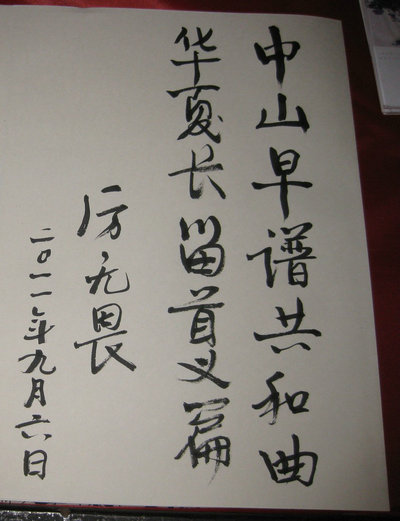 中山早谱共和曲
华夏长留首义篇
厉无畏
二〇一一年九月六日